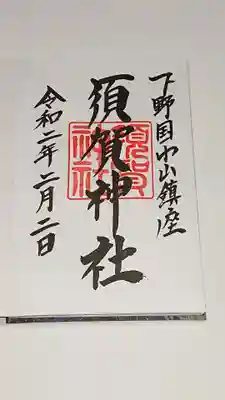 下野国小山鎮座
須賀神社
須賀神社
令和二年二月二日